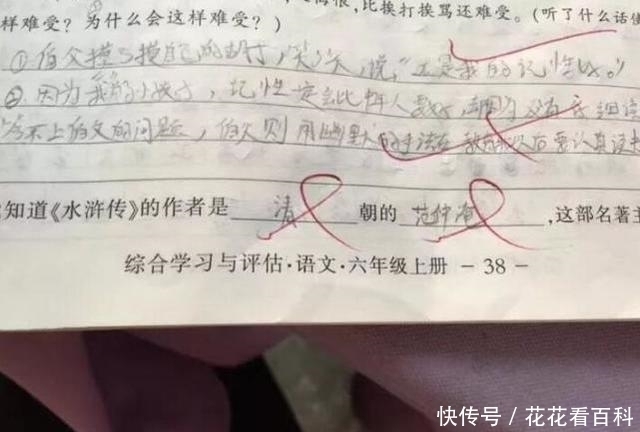 样难受？为什么会这样难受？）
，比挨打挨骂还难受。（听了什么话使
①伯父摸了摸自己的胡子，笑了笑，说，“还是我的记性好。”
②因为我的小孩子，记性一定会比年人
答不上伯父的问题，伯父则用幽默
要认真读
知道《水浒传》的作者是 清 朝的 范仲淹 ，这部名著主
综合学习与评估·语文·六年级上册 －38－
快传号 / 花花看百科